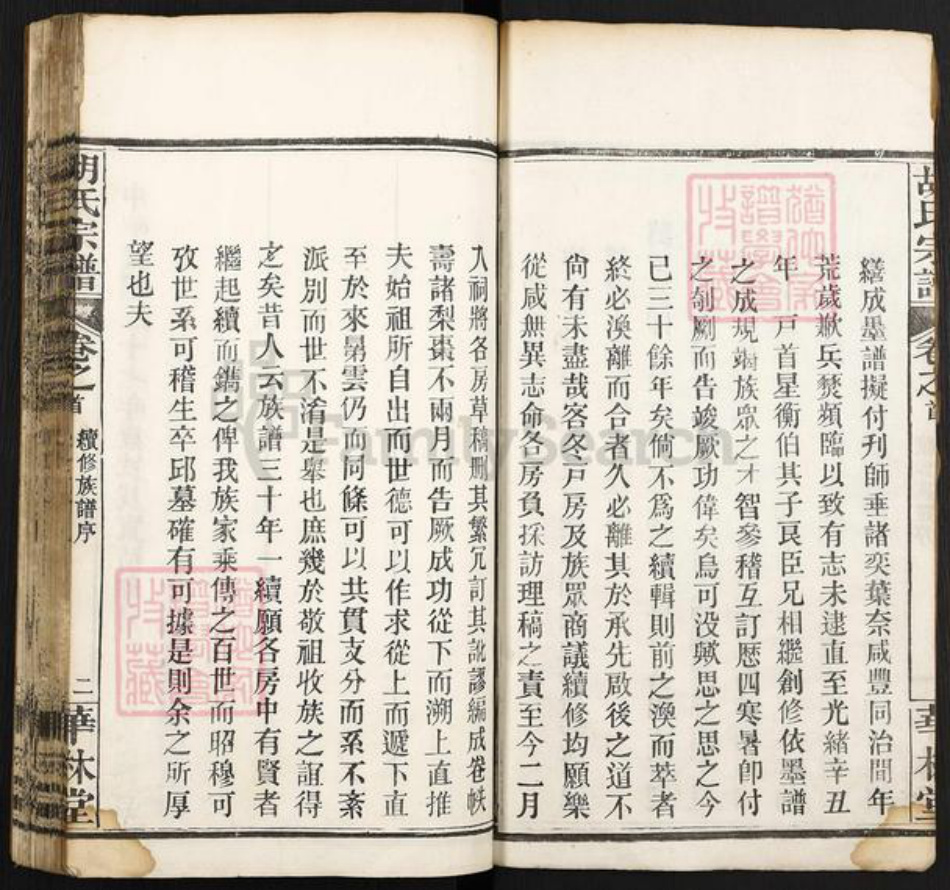 胡氏宗譜
卷之首
華林堂
繕成墨譜擬付刋師垂諸奕葉奈咸豐同治間年
荒歲歉兵燹頻臨以致有志未逮直至光緒辛丑
年 戸首星衡伯其子良臣兄相繼創修依墨譜
之成規竭族眾之才智參稽互訂歷四寒暑卽付
之剞劂而告竣厥功偉矣烏可没歟思之思之今
已三十餘年矣倘不爲之續輯則前之渙而萃者
終必渙離而合者久必離其於承先啟後之道不
尙有未盡哉客冬戸房及族眾商議續修均願樂
從咸無異志命各房負採訪理稿之責至今二月
入祠將各房草稿删其繁冗訂其訛謬編成卷帙
壽諸梨棗不兩月而告厥成功從下而溯上直推
夫始祖所自出而世德可以作求從上而遞下直
至於來晜雲仍而同條可以共貫支分而系不紊
派別而世不淆是舉也庶幾於敬祖收族之誼得
之矣昔人云族譜三十年一續願各房中有賢者
繼起續而鐫之俾我族家乘傳之百世而昭穆可
攷世系可稽生卒邱墓確有可據是則余之所厚
望也夫
胡氏宗譜
卷之首
續修族譜序
二
華林堂
FamilySearch